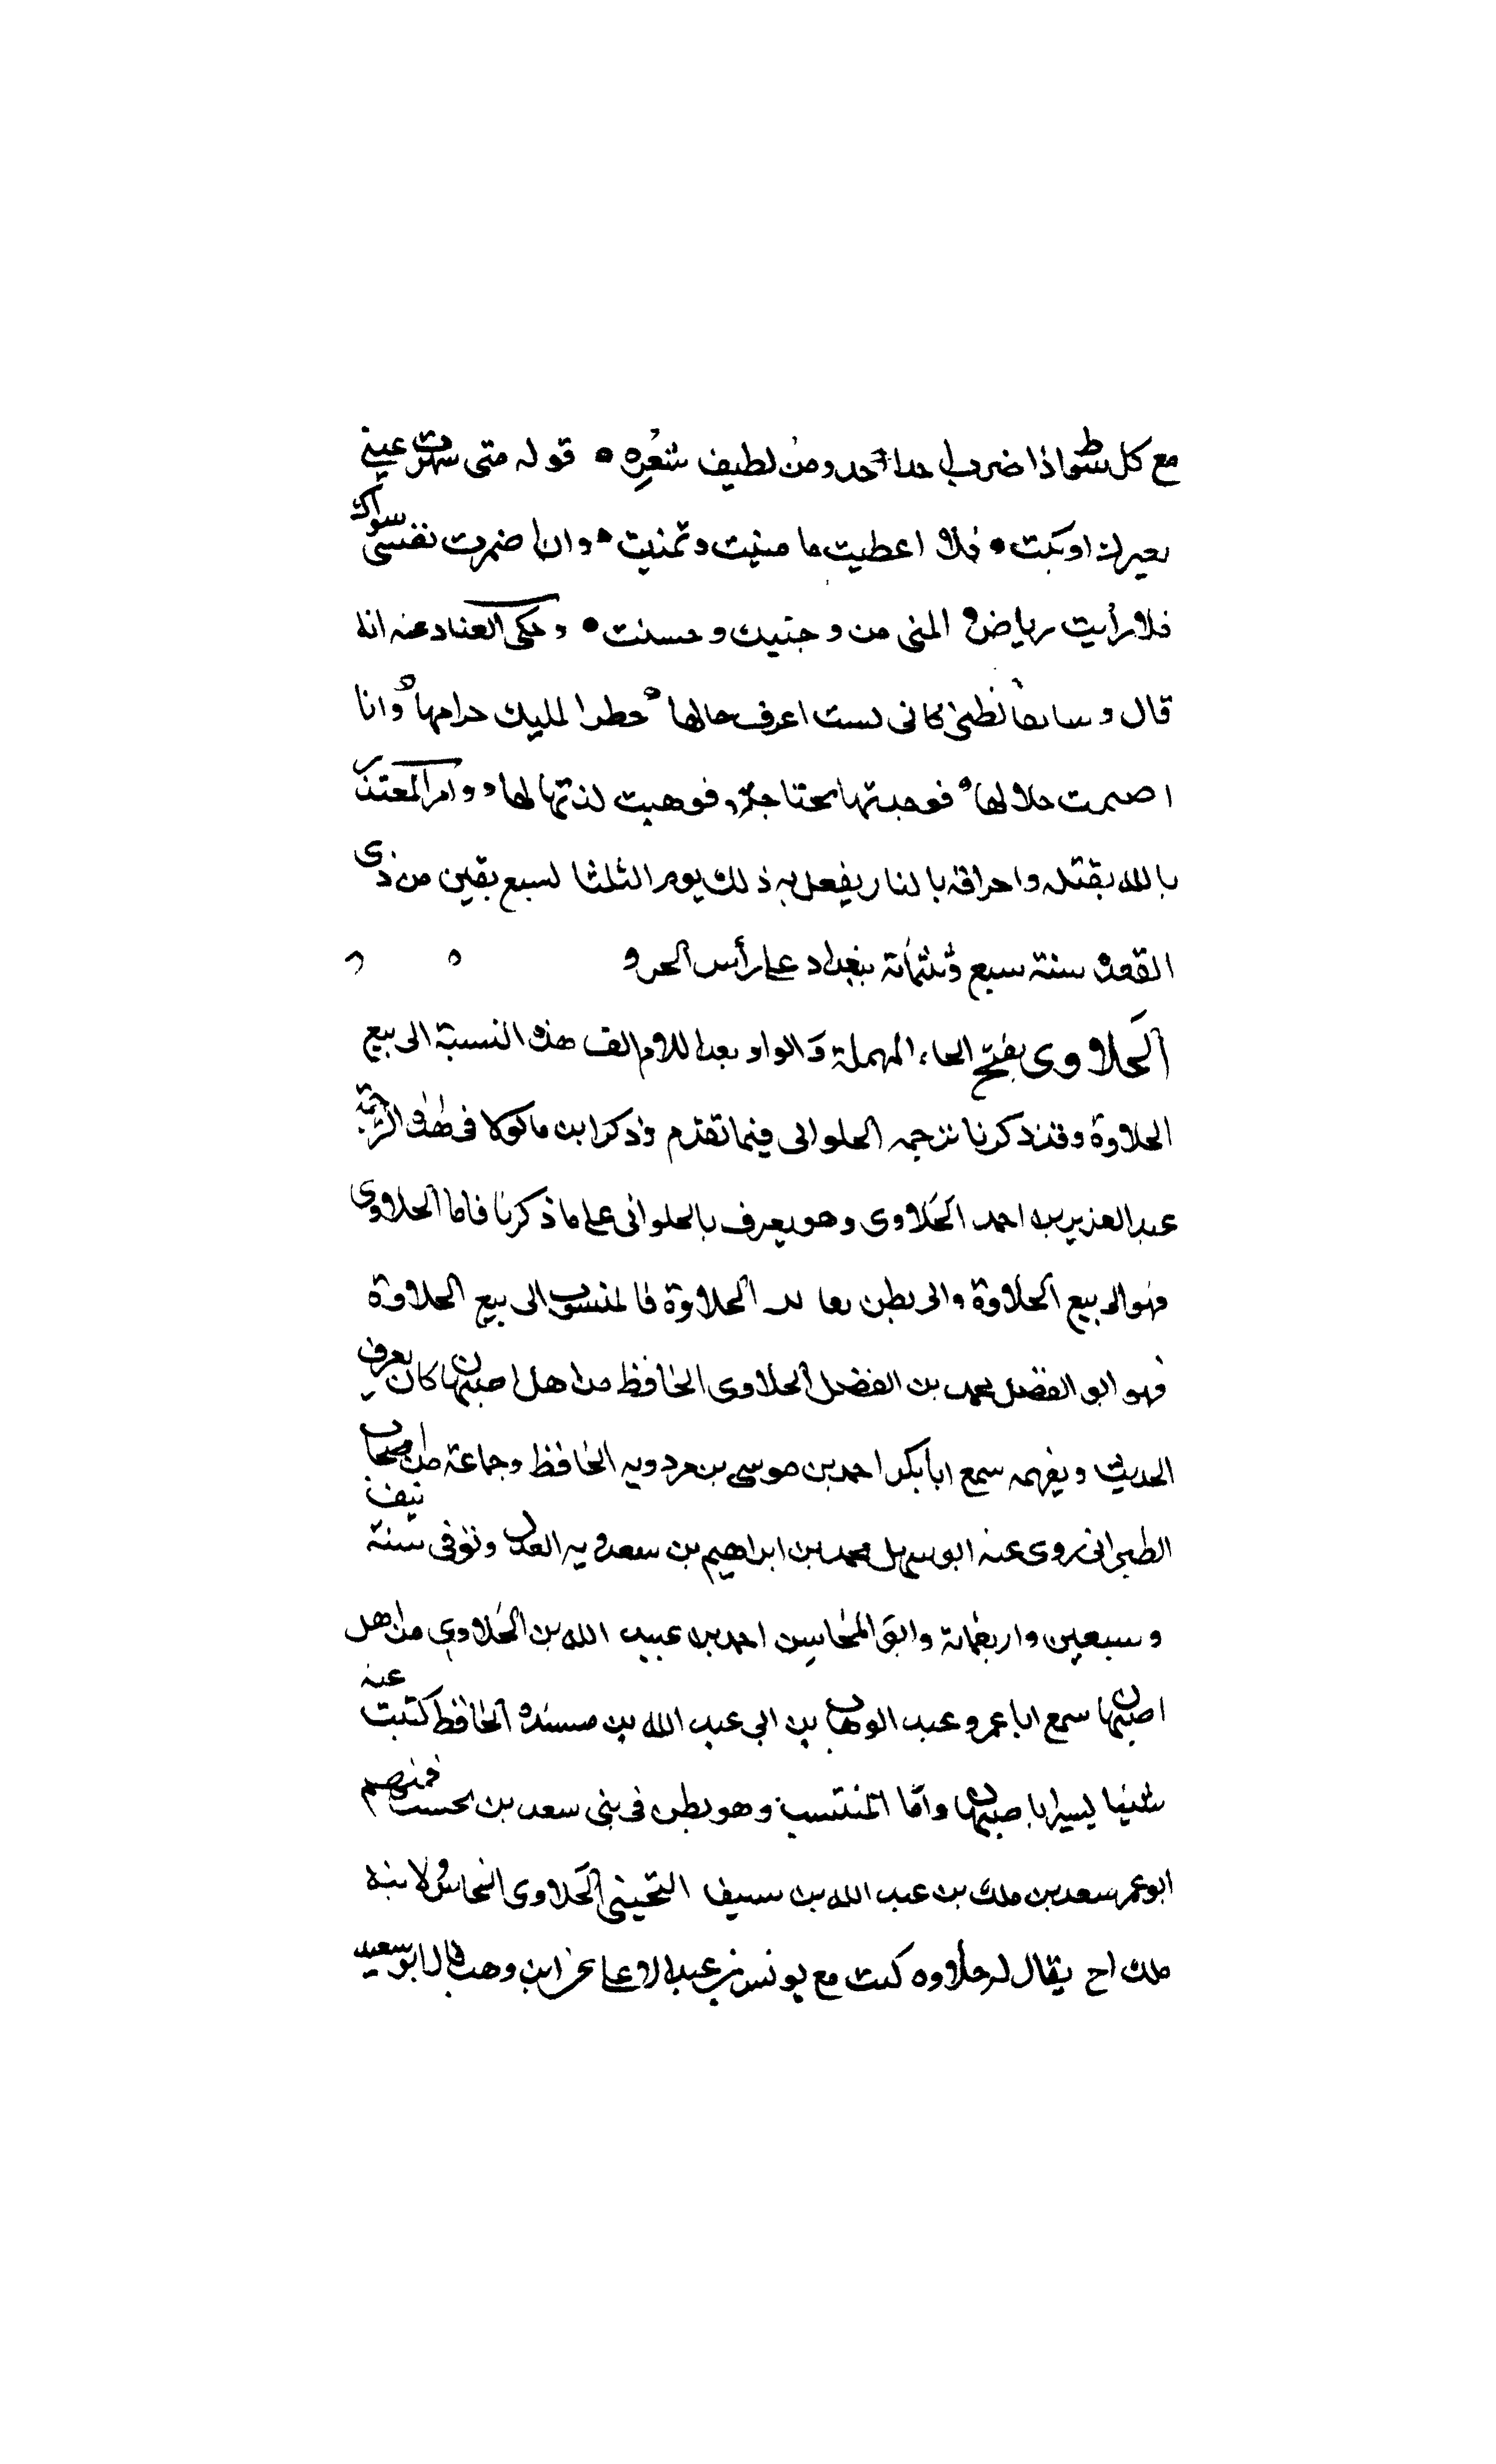 مع كل سطو اذا ضرب احدا احد ومن لطيف شعره • قوله متى سهرت عيني
لغيرك او بكت • فلا اعطيت ما منيت وتمنيت • وان اضمرت نفسي سواك
فلا رأيت رياض المنى من وجنتيك وحسنت • وحكى العناد عنه انه
قال دنيا تغالطني كاني لست اعرف حالها • حظر المليك حرامها وانا
اصبت حلالها • فوجدتها محتاجة • فوهبت لذتها لها • وامر المقتدر
بالله بقتله واحراقه بالنار يفعل به ذلك يوم الثلثا لسبع بقين من ذى
القعدة سنة سبع وثلثمائة ببغداد على رأس الجسر
الحلاوى بفتح الحاء المهملة والواو بعد اللام الف هذه النسبة الى بيع
الحلاوة وقد ذكرنا ترجمه الحلوانى فيما تقدم وذكر ابن ماكولا فى هذه الترجمة
عبد العزيز بن احمد الحلاوى وهو يعرف بالحلوانى على ما ذكرنا فاما الحلاوى
فهو الى بيع الحلاوة والى بطن يقال له الحلاوة فالمنسوب الى بيع الحلاوة
فهو ابو الفضل محمد بن الفضل الحلاوى الحافظ من اهل اصبهان كان يعرف
الحديث ويفهمه سمع ابا بكر احمد بن موسى بن مردويه الحافظ وجماعة من اصحاب
الطبرانى روى عنه ابو سهل محمد بن ابراهيم بن سعدويه العدل وتوفى سنة نيف
وسبعين واربعمائة وابو المحاسن احمد بن عبيد الله بن الحلاوى من اهل
اصبهان سمع ابا عمرو عبد الوهاب بن ابى عبد الله بن مندة الحافظ كتبت عنه
شيئا يسيرا باصبهان واما المنتسب وهو بطن فى بنى سعد بن تحسب فمنهم
ابو عمر سعد بن ملك بن عبد الله بن سيف التجيبى الحلاوى النحاس ولابنه
ملك اح يقال له حلاوه كتب مع يونس بن عبد الاعلى عن ابن وهب قال ابو سعيد